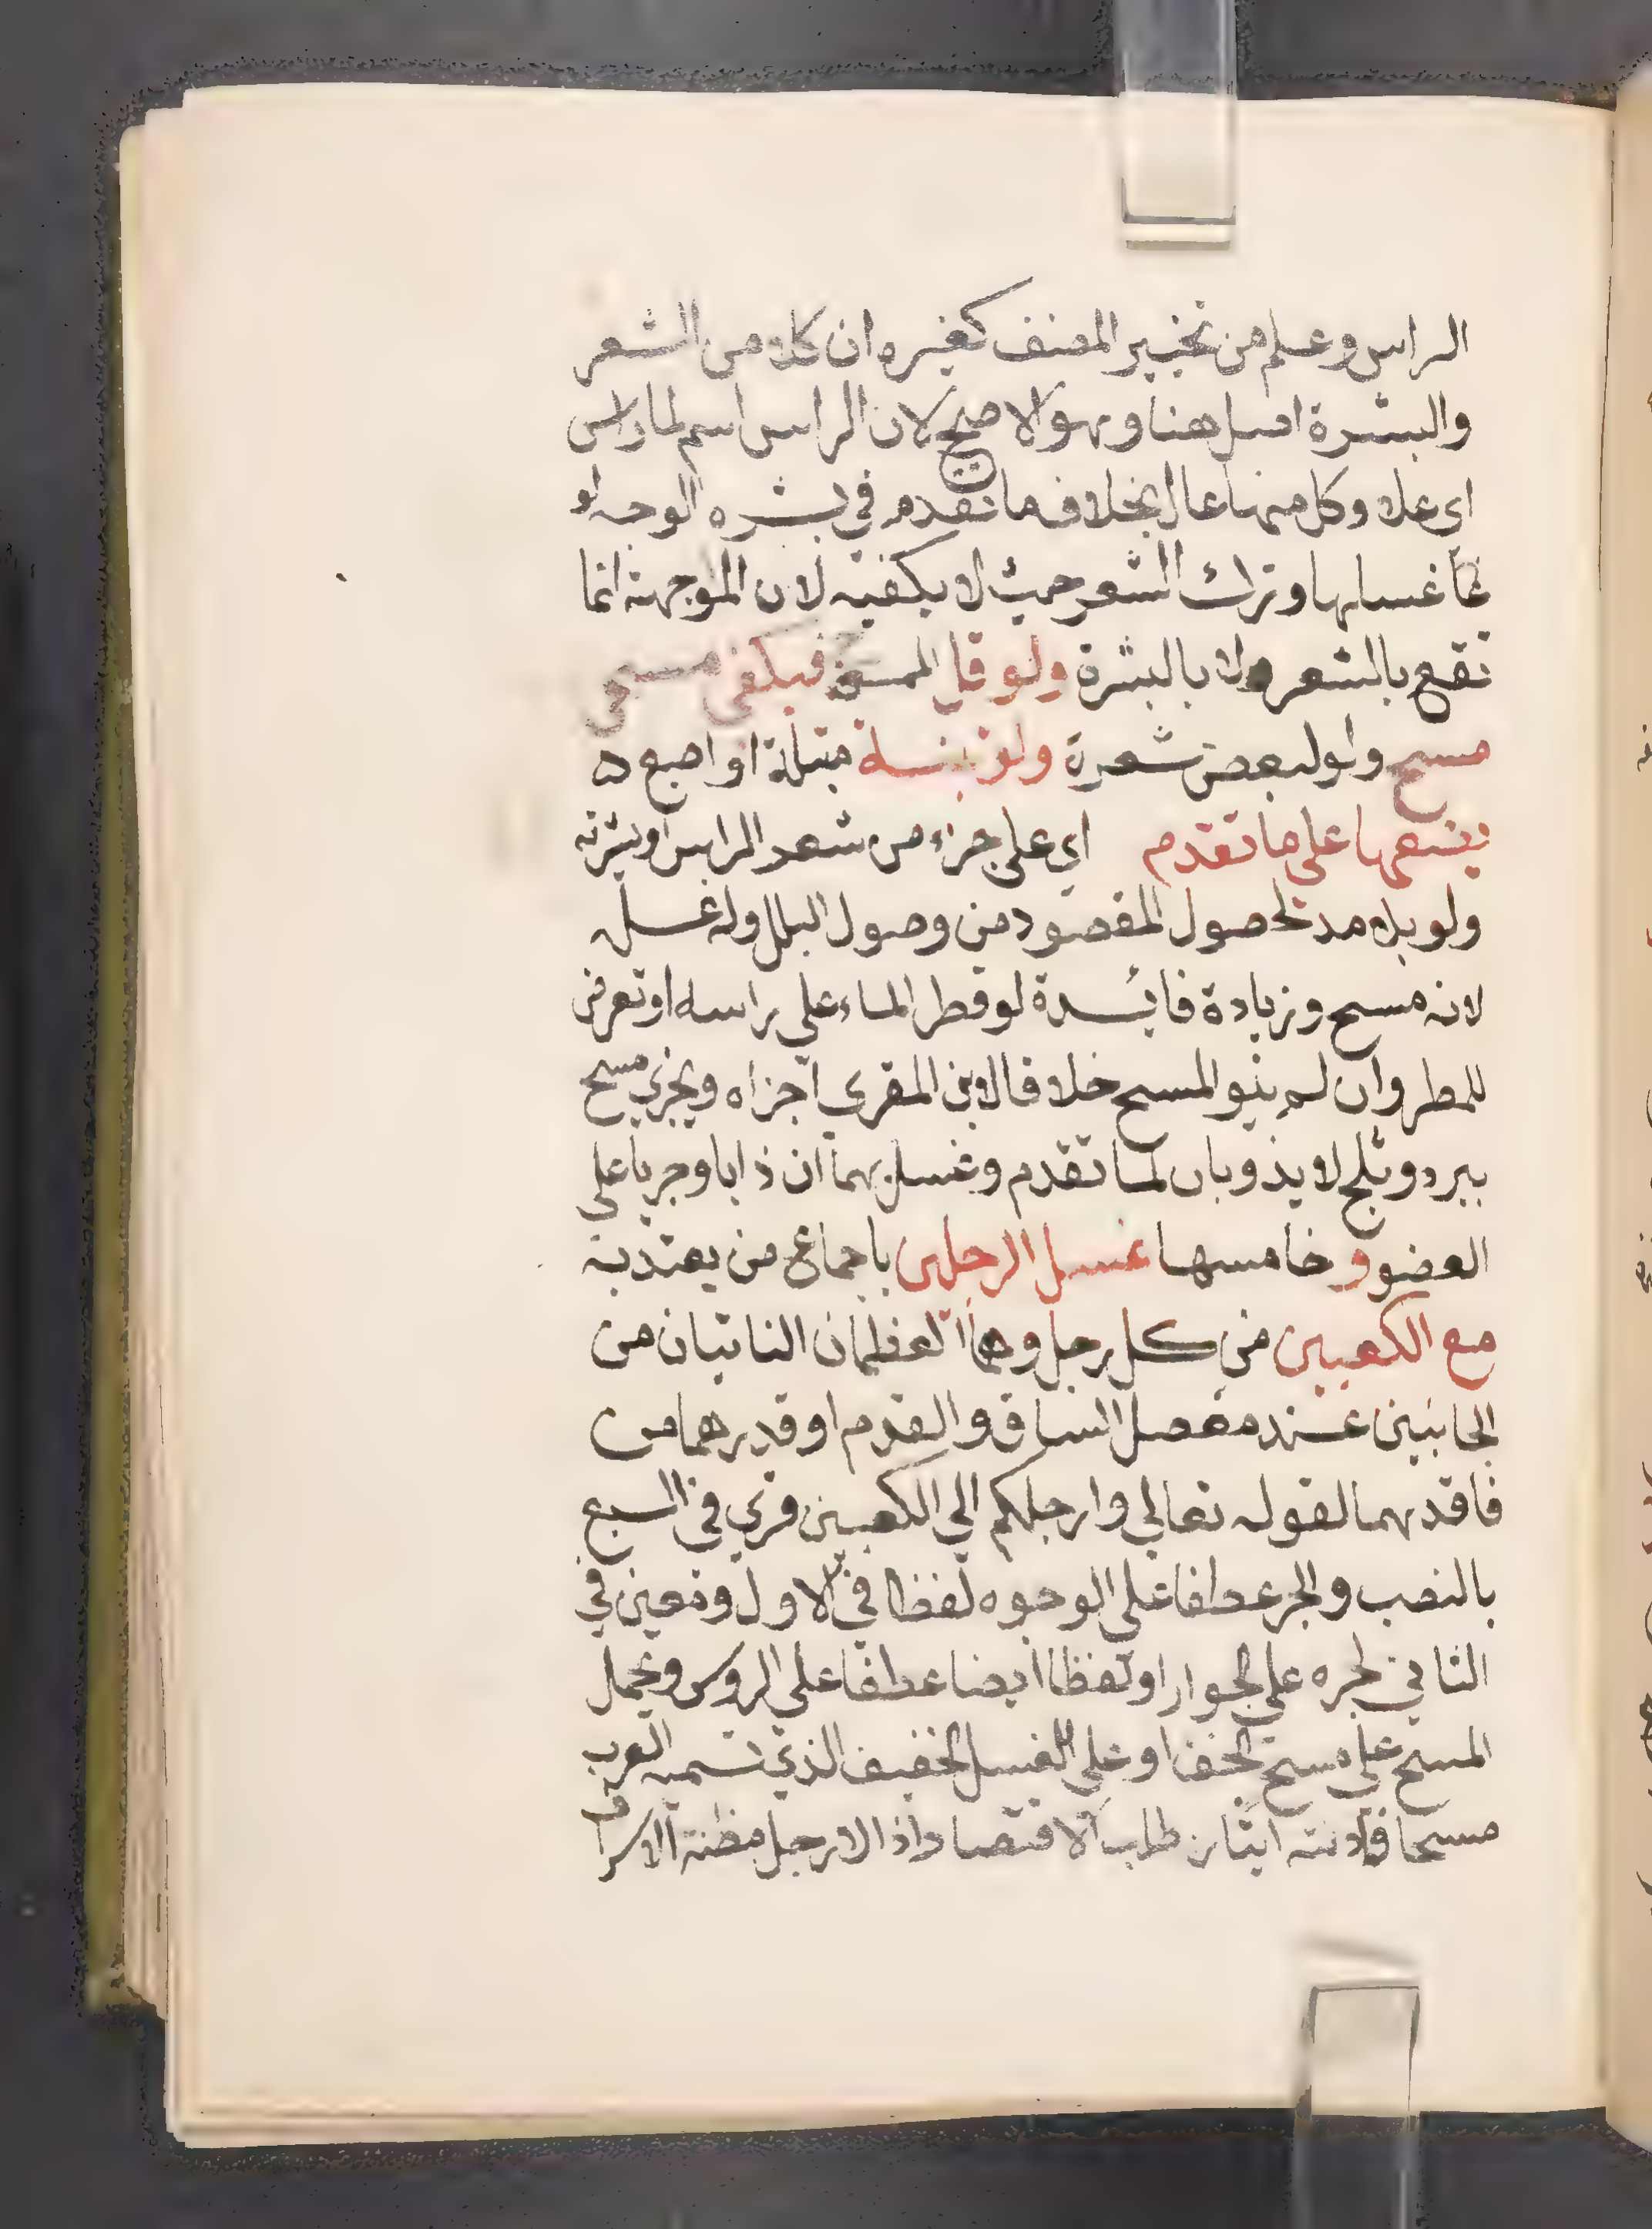 الراس وعلم من تخيير المصنف كغيره ان كلا من الشعر
والبشرة اصل هنا وهو الاصح لان الراس اسم لما راس
اي علا وكل منهما عال بخلاف ما تقدم في بشره الوجه او
غسلها وترك الشعر حيث لا يكفيه لان الموجهة انما
تقع بالشعر ولا بالبشرة ولو قل الممسوح فيكفي مسمي
مسح ولو لبعض شعرة ولو مبتلة او اصبع ٥
يضعها على ما تقدم اي على جزء من شعر الراس او بشرته
ولو بلا مد لحصول المقصود من وصول البلل وله غسل
لانه مسح وزيادة فائدة لو قطر الماء على راسه او تعرض
للمطر وان لم ينو المسح خلافا لابن المقري اجزاه ويجزي مسح
ببرد وثلج لا يذوبان لما تقدم وغسل بهما ان ذابا وجريا على
العضو وخامسها غسل الرجلين باجماع من يعتد به
مع الكعبين من كل رجل وهما العظمان الناتيان من
الجانبين عند مفصل الساق والقدم او قدرهما من
فاقدهما لقوله تعالي وارجلكم الي الكعبين قري في السبع
بالنصب والجر عطفا على الوجوه لفظا في الاول ومعنى في
الثاني لجره على الجوار او لفظا ايضا عطفا على الروس ويحمل
المسح على مسح الخف او على الغسل الخفيف الذي تسميه العرب
مسحا ايثار طلب الاقتصاد اذ الارجل مظنة الاسراف